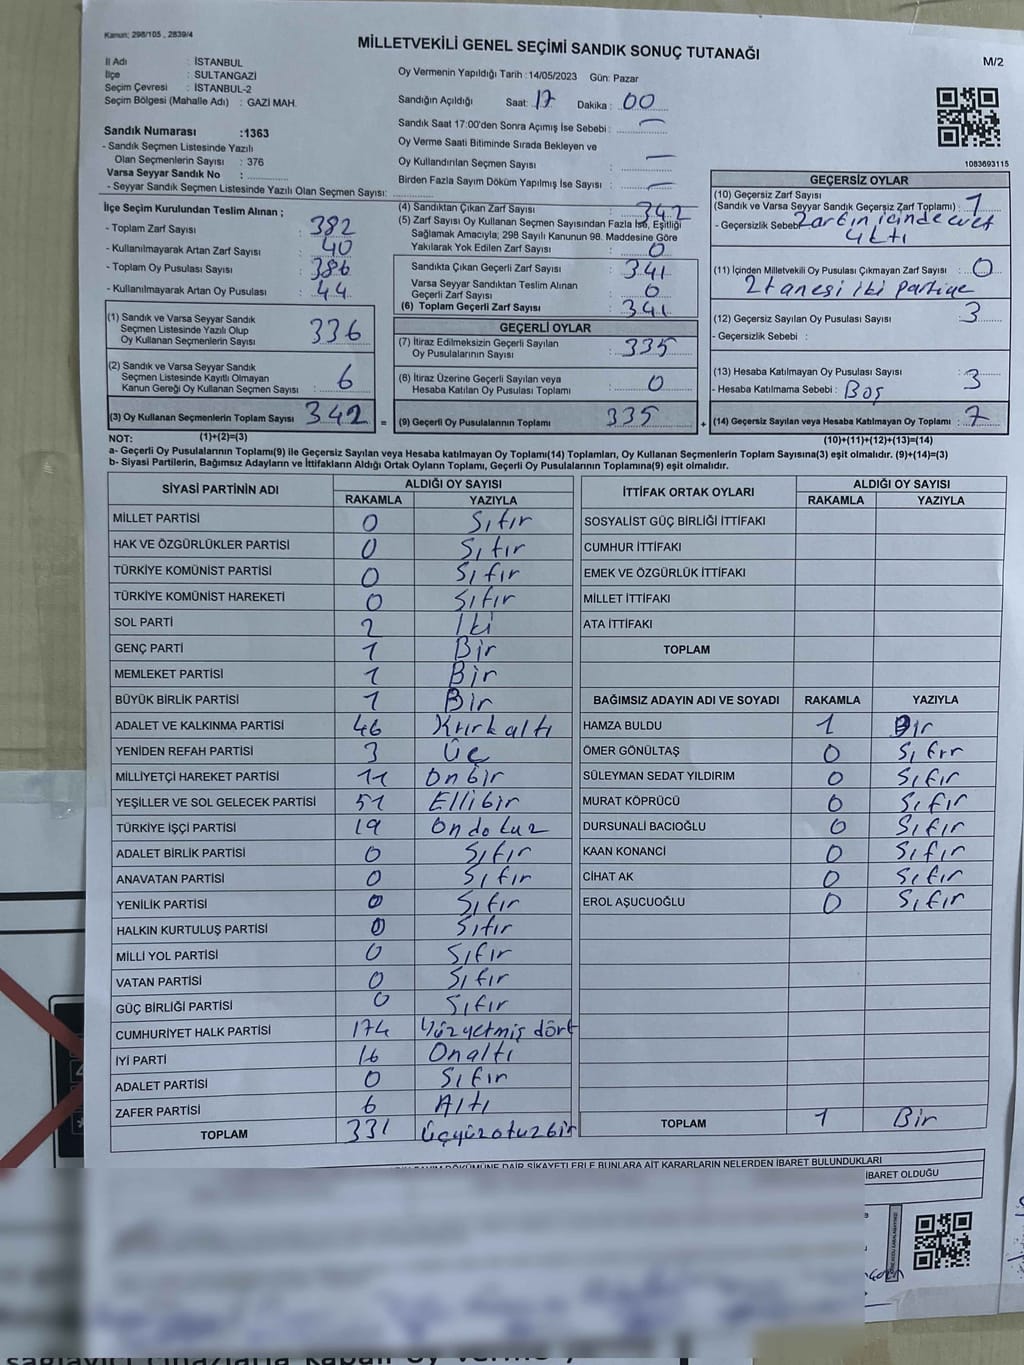 Kanun; 298/105 , 2839/4
MİLLETVEKİLİ GENEL SEÇİMİ SANDIK SONUÇ TUTANAĞI
M/2
İl Adı : İSTANBUL
İlçe : SULTANGAZİ
Seçim Çevresi : İSTANBUL-2
Seçim Bölgesi (Mahalle Adı) : GAZİ MAH.
Oy Vermenin Yapıldığı Tarih : 14/05/2023 Gün: Pazar
Sandığın Açıldığı Saat: 17 Dakika : 00
Sandık Saat 17:00'den Sonra Açımış İse Sebebi : —
Oy Verme Saati Bitiminde Sırada Bekleyen ve
Oy Kullandırılan Seçmen Sayısı : —
Birden Fazla Sayım Döküm Yapılmış İse Sayısı : —
1083693115
Sandık Numarası :1363
- Sandık Seçmen Listesinde Yazılı
Olan Seçmenlerin Sayısı : 376
Varsa Seyyar Sandık No :
- Seyyar Sandık Seçmen Listesinde Yazılı Olan Seçmen Sayısı:
İlçe Seçim Kurulundan Teslim Alınan ;
- Toplam Zarf Sayısı : 382
- Kullanılmayarak Artan Zarf Sayısı : 40
- Toplam Oy Pusulası Sayısı : 386
- Kullanılmayarak Artan Oy Pusulası : 44
(1) Sandık ve Varsa Seyyar Sandık
Seçmen Listesinde Yazılı Olup
Oy Kullanan Seçmenlerin Sayısı : 336
(2) Sandık ve Varsa Seyyar Sandık
Seçmen Listesinde Kayıtlı Olmayan
Kanun Gereği Oy Kullanan Seçmen Sayısı : 6
(3) Oy Kullanan Seçmenlerin Toplam Sayısı : 342
(1)+(2)=(3)
(4) Sandıktan Çıkan Zarf Sayısı : 342
(5) Zarf Sayısı Oy Kullanan Seçmen Sayısından Fazla İse, Eşitliği
Sağlamak Amacıyla; 298 Sayılı Kanunun 98. Maddesine Göre
Yakılarak Yok Edilen Zarf Sayısı : 0
Sandıkta Çıkan Geçerli Zarf Sayısı : 341
Varsa Seyyar Sandıktan Teslim Alınan
Geçerli Zarf Sayısı : 0
(6) Toplam Geçerli Zarf Sayısı : 341
GEÇERLİ OYLAR
(7) İtiraz Edilmeksizin Geçerli Sayılan
Oy Pusulalarının Sayısı : 335
(8) İtiraz Üzerine Geçerli Sayılan veya
Hesaba Katılan Oy Pusulası Toplamı : 0
= (9) Geçerli Oy Pusulalarının Toplamı : 335 +
GEÇERSİZ OYLAR
(10) Geçersiz Zarf Sayısı
(Sandık ve Varsa Seyyar Sandık Geçersiz Zarf Toplamı) : 1
- Geçersizlik Sebebi: Zarfın içinde evet
çıktı
(11) İçinden Milletvekili Oy Pusulası Çıkmayan Zarf Sayısı : 0
2 tanesi iki partiye
(12) Geçersiz Sayılan Oy Pusulası Sayısı : 3
- Geçersizlik Sebebi :
(13) Hesaba Katılmayan Oy Pusulası Sayısı : 3
- Hesaba Katılmama Sebebi : Boş
(14) Geçersiz Sayılan veya Hesaba Katılmayan Oy Toplamı : 7
(10)+(11)+(12)+(13)=(14)
NOT:
a- Geçerli Oy Pusulasının Toplamı(9) ile Geçersiz Sayılan veya Hesaba katılmayan Oy Toplamı(14) Toplamları, Oy Kullanan Seçmenlerin Toplam Sayısına(3) eşit olmalıdır. (9)+(14)=(3)
b- Siyasi Partilerin, Bağımsız Adayların ve İttifakların Aldığı Ortak Oyların Toplamı, Geçerli Oy Pusulalarının Toplamına(9) eşit olmalıdır.
SİYASİ PARTİNİN ADI ALDIĞI OY SAYISI
RAKAMLA YAZIYLA
MİLLET PARTİSİ 0 Sıfır
HAK VE ÖZGÜRLÜKLER PARTİSİ 0 Sıfır
TÜRKİYE KOMÜNİST PARTİSİ 0 Sıfır
TÜRKİYE KOMÜNİST HAREKETİ 0 Sıfır
SOL PARTİ 2 İki
GENÇ PARTİ 1 Bir
MEMLEKET PARTİSİ 1 Bir
BÜYÜK BİRLİK PARTİSİ 1 Bir
ADALET VE KALKINMA PARTİSİ 46 Kırkaltı
YENİDEN REFAH PARTİSİ 3 Üç
MİLLİYETÇİ HAREKET PARTİSİ 11 Onbir
YEŞİLLER VE SOL GELECEK PARTİSİ 51 Ellibir
TÜRKİYE İŞÇİ PARTİSİ 19 Ondokuz
ADALET BİRLİK PARTİSİ 0 Sıfır
ANAVATAN PARTİSİ 0 Sıfır
YENİLİK PARTİSİ 0 Sıfır
HALKIN KURTULUŞ PARTİSİ 0 Sıfır
MİLLİ YOL PARTİSİ 0 Sıfır
VATAN PARTİSİ 0 Sıfır
GÜÇ BİRLİĞİ PARTİSİ 0 Sıfır
CUMHURİYET HALK PARTİSİ 174 Yüzyetmiş dört
İYİ PARTİ 16 Onaltı
ADALET PARTİSİ 0 Sıfır
ZAFER PARTİSİ 6 Altı
TOPLAM 331 Üçyüzotuzbir
İTTİFAK ORTAK OYLARI ALDIĞI OY SAYISI
RAKAMLA YAZIYLA
SOSYALİST GÜÇ BİRLİĞİ İTTİFAKI
CUMHUR İTTİFAKI
EMEK VE ÖZGÜRLÜK İTTİFAKI
MİLLET İTTİFAKI
ATA İTTİFAKI
TOPLAM
BAĞIMSIZ ADAYIN ADI VE SOYADI RAKAMLA YAZIYLA
HAMZA BULDU 1 Bir
ÖMER GÖNÜLTAŞ 0 Sıfır
SÜLEYMAN SEDAT YILDIRIM 0 Sıfır
MURAT KÖPRÜCÜ 0 Sıfır
DURSUNALİ BACIOĞLU 0 Sıfır
KAAN KONANCİ 0 Sıfır
CİHAT AK 0 Sıfır
EROL AŞUCUOĞLU 0 Sıfır
TOPLAM 1 Bir
DÖKÜMÜNE DAİR ŞİKAYETLERLE BUNLARA AİT KARARLARIN NELERDEN İBARET BULUNDUKLARI
İBARET OLDUĞU